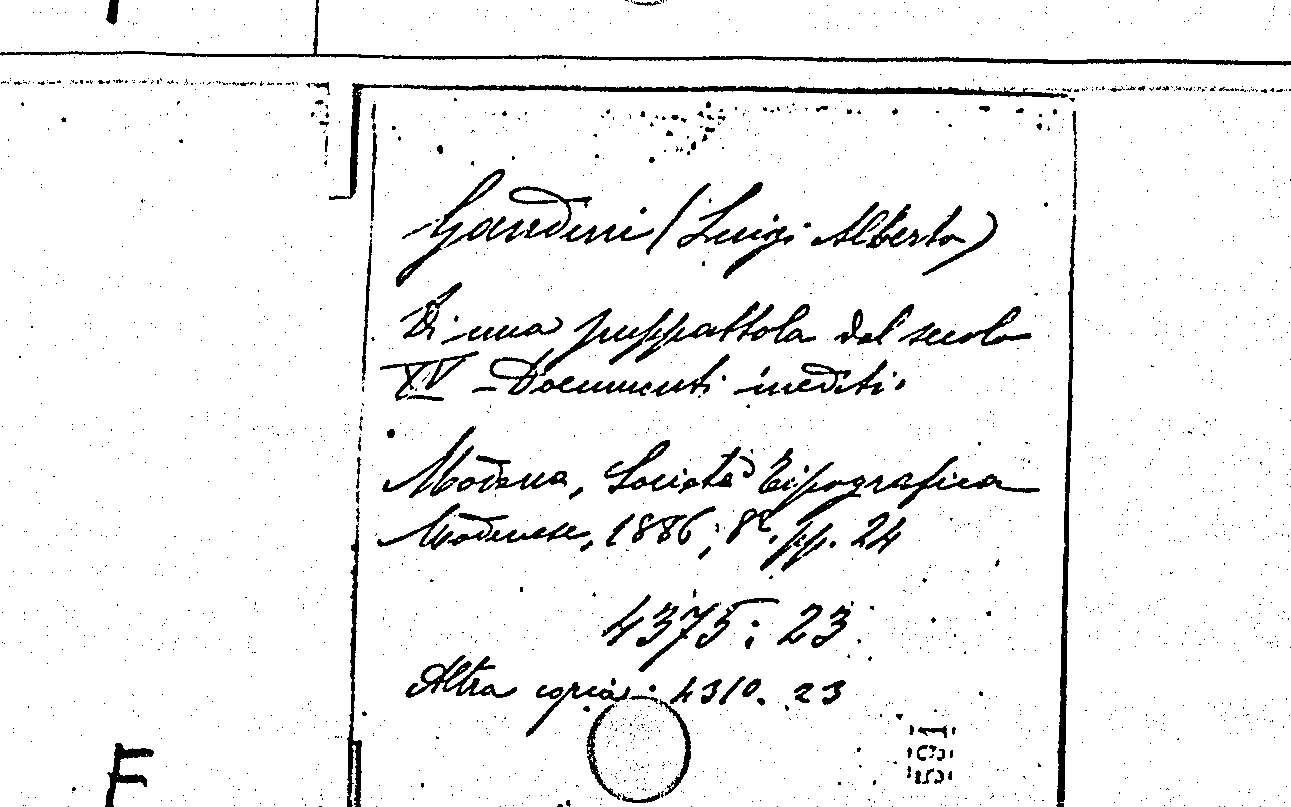 Gandini (Luigi Alberto)
Di una puppattola del secolo
XV - Documenti inediti.
Modena, Società Tipografica
Modenese, 1886; 8º. pp. 24
4375: 23
Altra copia: 4310. 23
F